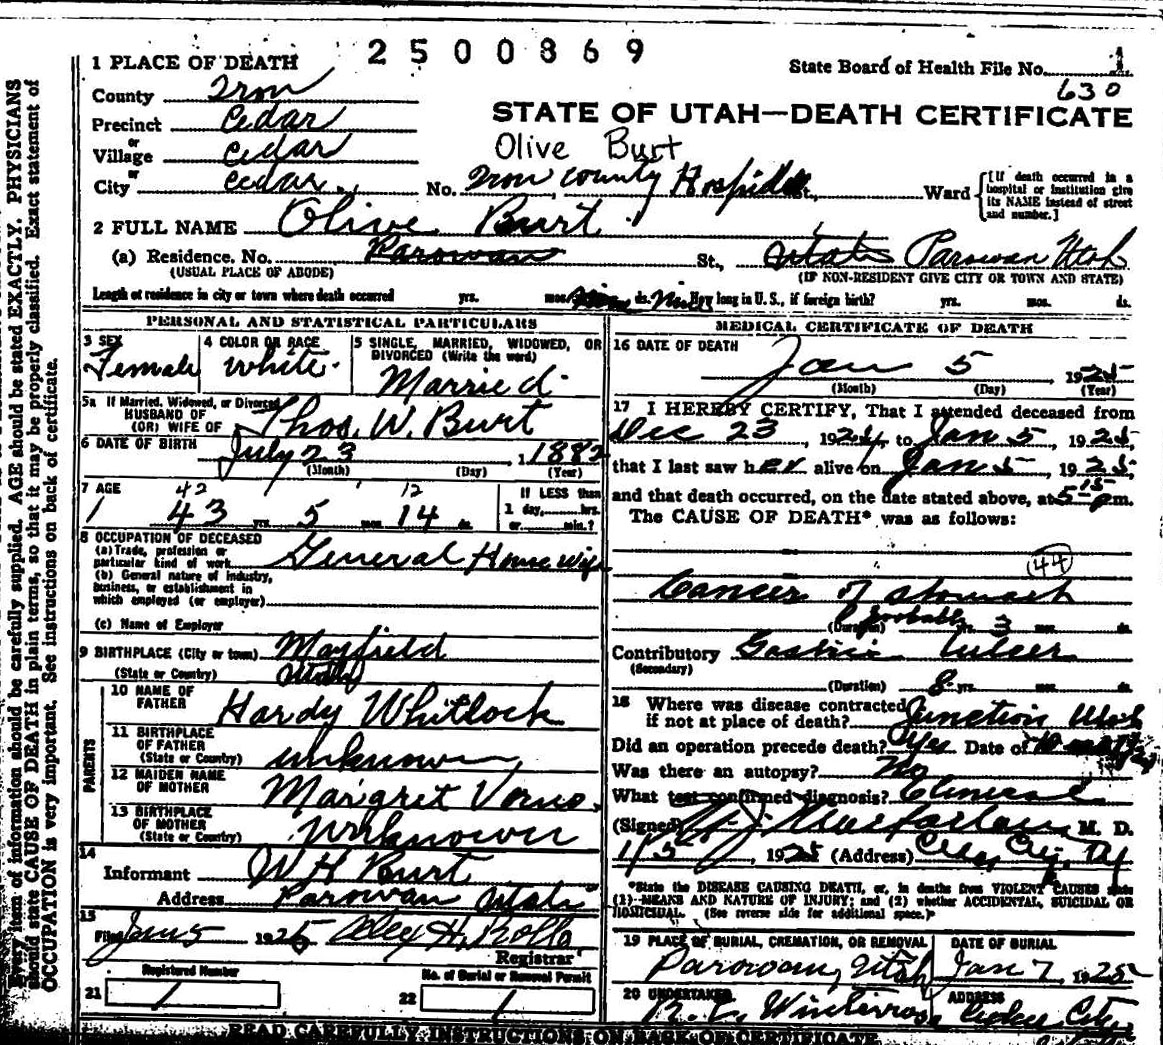 2500869
1 PLACE OF DEATH
State Board of Health File No. 1
630
County Iron
STATE OF UTAH—DEATH CERTIFICATE
Precinct Cedar
or
Olive Burt
Village Cedar
or
City Cedar No. Iron County Hospital St., Ward
[If death occurred in a hospital or institution give its NAME instead of street and number.]
2 FULL NAME Olive Burt
(a) Residence. No. Parowan St., Utah Parowan Utah
(USUAL PLACE OF ABODE) (IF NON-RESIDENT GIVE CITY OR TOWN AND STATE)
Length of residence in city or town where death occurred yrs. mos. ds. How long in U. S., if foreign birth? yrs. mos. ds.
PERSONAL AND STATISTICAL PARTICULARS
3 SEX 4 COLOR OR RACE 5 SINGLE, MARRIED, WIDOWED, OR
DIVORCED (Write the word)
Female White Married
5a If Married, Widowed, or Divorced
HUSBAND OF
(OR) WIFE OF Thos. W. Burt
6 DATE OF BIRTH July 23 1882
(Month) (Day) (Year)
7 AGE 42 12 If LESS than
1 43 yrs. 5 mos. 14 ds. 1 day, hrs.
or min.?
8 OCCUPATION OF DECEASED
(a) Trade, profession or
particular kind of work General Housewife
(b) General nature of industry,
business, or establishment in
which employed (or employer)
(c) Name of Employer
9 BIRTHPLACE (City or town) Mayfield
(State or Country) Utah
PARENTS
10 NAME OF
FATHER Hardy Whitlock
11 BIRTHPLACE
OF FATHER
(State or Country) unknown
12 MAIDEN NAME
OF MOTHER Margret
13 BIRTHPLACE
OF MOTHER
(State or Country) Unknown
14
Informant W H Burt
Address Parowan Utah
15
Filed Jan 5 1925 Alex H. Rollo
Registrar
Registered Number No. of Burial or Removal Permit
21 1 22 1
MEDICAL CERTIFICATE OF DEATH
16 DATE OF DEATH
Jan 5 1925
(Month) (Day) (Year)
17 I HEREBY CERTIFY, That I attended deceased from
Dec 23, 1924, to Jan 5, 1925,
that I last saw her alive on Jan 5, 1925
and that death occurred, on the date stated above, at 5 15 p m.
The CAUSE OF DEATH* was as follows:
44
Cancer of stomach
(Duration) probably yrs. 3 mos. ds.
Contributory Gastric Ulcer
(Secondary)
(Duration) 8 yrs. mos. ds.
18 Where was disease contracted
if not at place of death? Junction Utah
Did an operation precede death? Yes Date of
Was there an autopsy? No
What test confirmed diagnosis? Clinical
(Signed) Macfarlane M. D.
1/5, 1925 (Address) Cedar City, Ut
*State the DISEASE CAUSING DEATH, or, in deaths from VIOLENT CAUSES state
(1) MEANS AND NATURE OF INJURY; and (2) whether ACCIDENTAL, SUICIDAL OR
HOMICIDAL. (See reverse side for additional space.)
19 PLACE OF BURIAL, CREMATION, OR REMOVAL DATE OF BURIAL
Parowan, Utah Jan 7 1925
20 UNDERTAKER ADDRESS
Winterrose Cedar City
READ CAREFULLY INSTRUCTIONS ON BACK OF CERTIFICATE
Every item of information should be carefully supplied. AGE should be stated EXACTLY. PHYSICIANS
should state CAUSE OF DEATH in plain terms, so that it may be properly classified. Exact statement of
OCCUPATION is very important. See instructions on back of certificate.